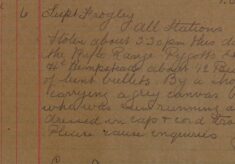 6 Supt Frogley
All Stations
Stolen about 3.30pm this d
the Rifle Range Piggotts
Hempstead about 12
of lead bullets. By a
carrying a grey canvas
who was seen running a
dressed in cap & cord
Please cause enquiries